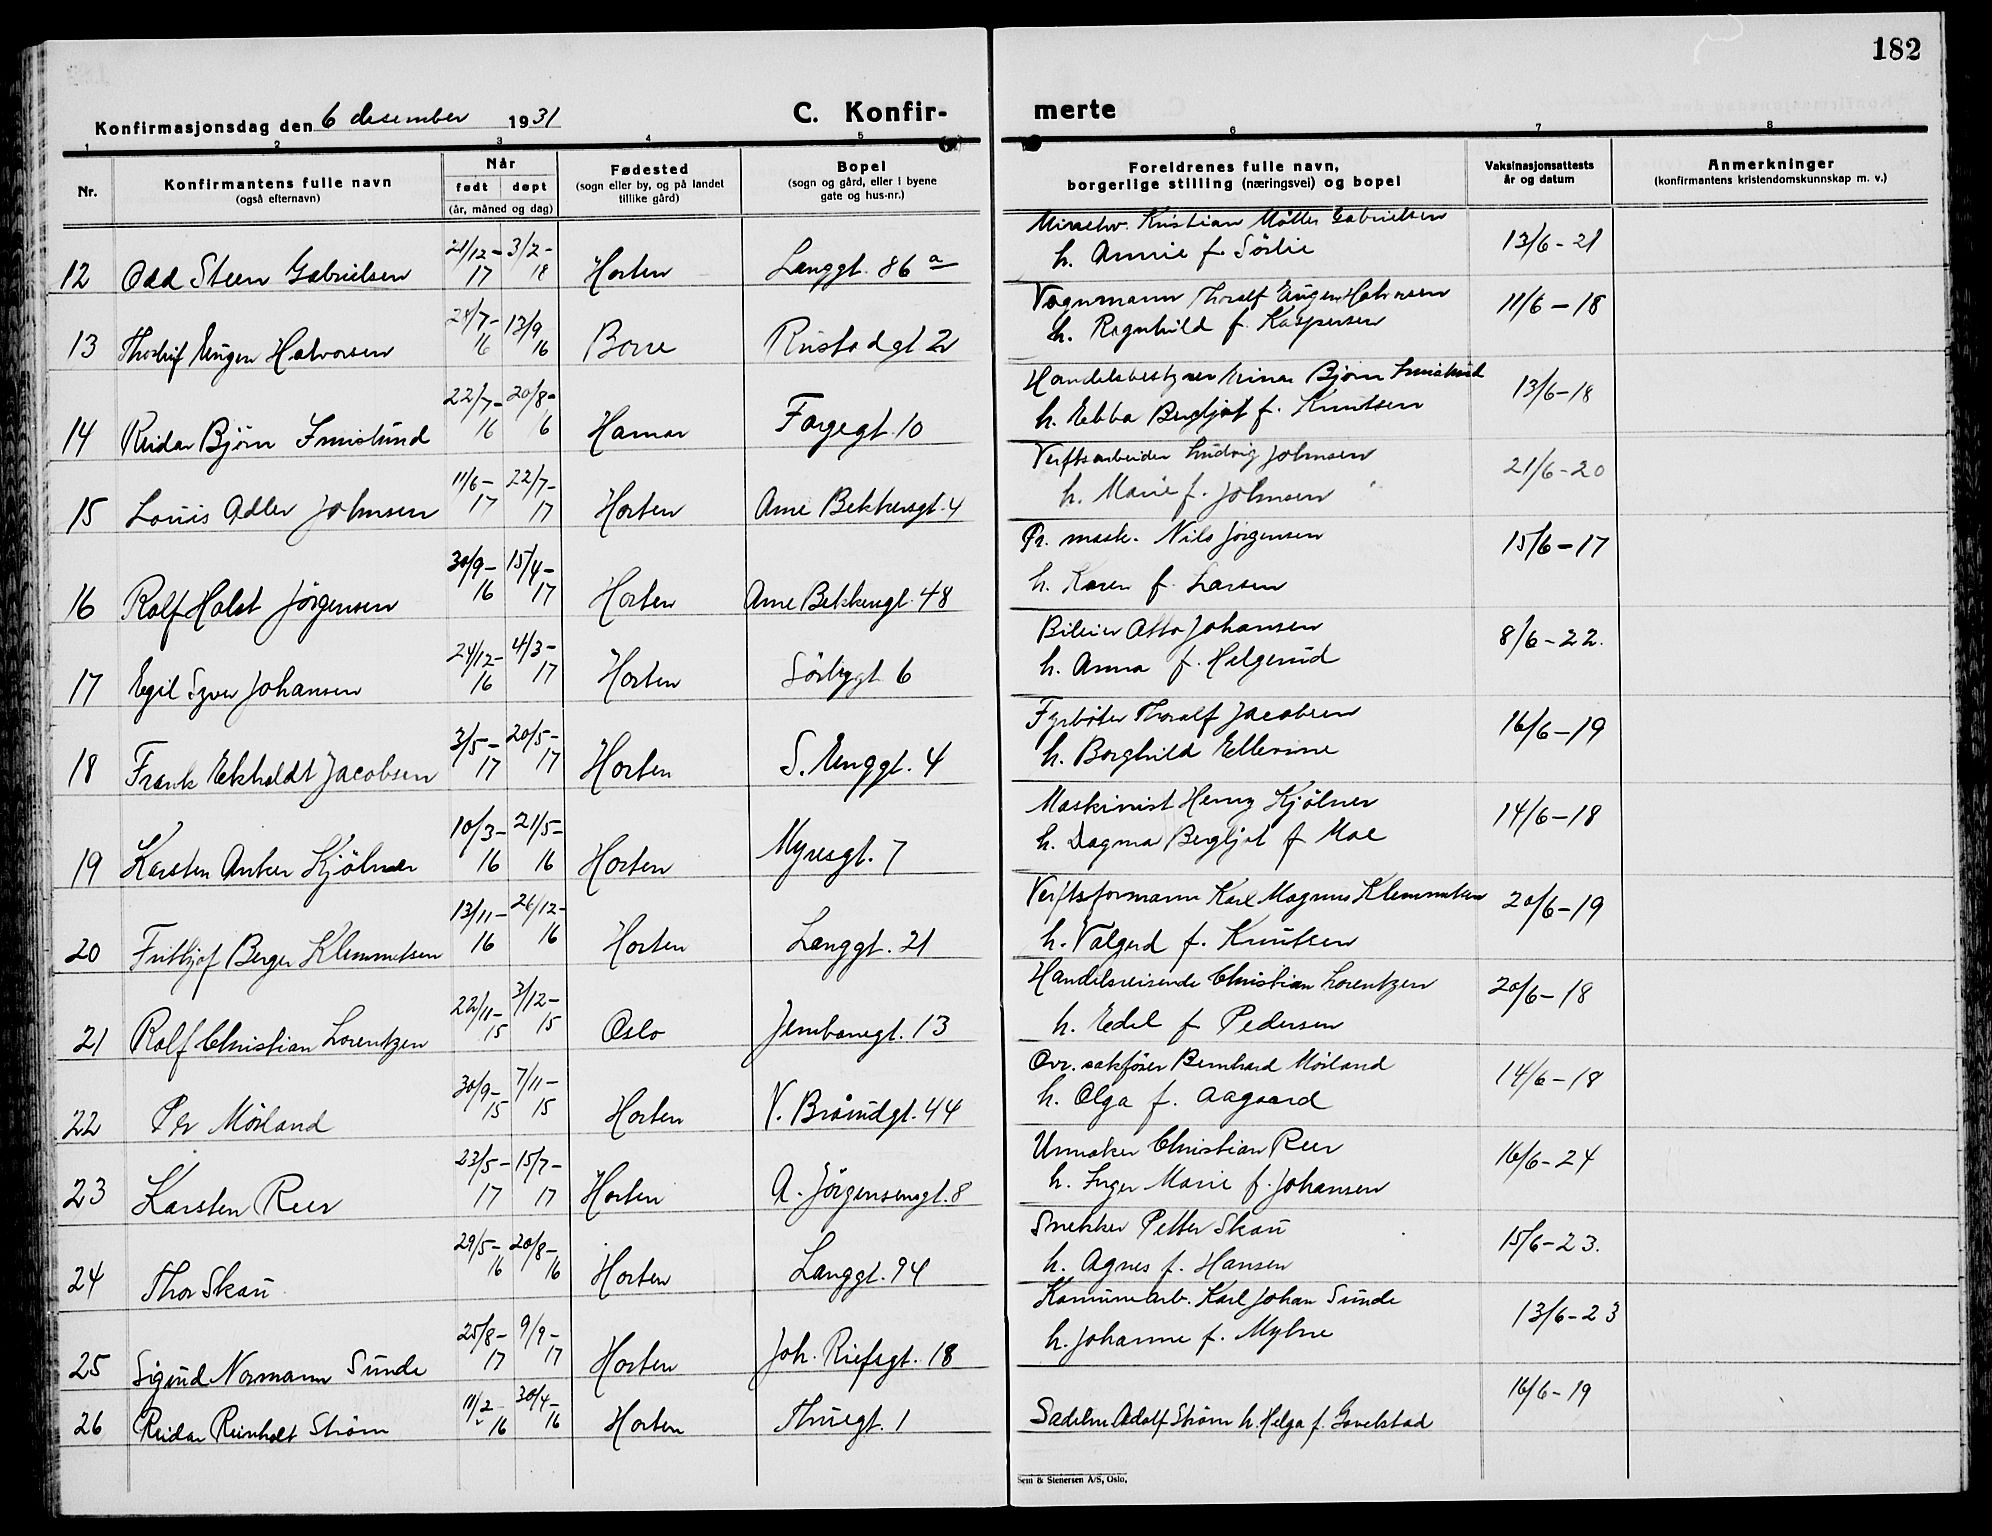 182
Konfirmasjonsdag den 6 desember 1931 C. Konfir- merte
1 2 3 4 5 6 7 8
Nr. Konfirmantens fulle navn (også efternavn) Når født døpt (år, måned og dag) Fødested (sogn eller by, og på landet tillike gård) Bopel (sogn og gård, eller i byene gate og hus-nr.) Foreldrenes fulle navn, borgerlige stilling (næringsvei) og bopel Vaksinasjonsattests år og datum Anmerkninger (konfirmantens kristendomskunnskap m. v.)
Kristian Møller Gabrielsen
12 Odd Steen Gabrielsen 21/12-17 3/2-18 Horten Langgt. 86 a h. Annie f. Sørlie 13/6-21
Vognmann Thoralf Eugen Halvorsen
13 Eugen Halvorsen 24/7-16 13/9 16 Borre Rustadgt 2 h. Ragnhild f. Kaspersen 11/6-18
Handelsbestyrer Einar Bjørn Smislund
14 Reidar Bjørn Smislund 22/7-16 20/8-6 Hamar Fargegt. 10 h. Ebba Bergljot f. Knutsen 13/6-18
Verftsarbeider Ludvig Johnsen
15 Louis Adler Johnsen 11/6-17 22/7-17 Horten Arne Bekkersgt. 4 h. Marie f. Johnsen 21/6-20
Pr. mask. Nils Jørgensen
16 Rolf Holst Jørgensen 30/9-16 15/4-17 Horten Arne Bekkersgt. 48 h. Karen f. Larsen 15/6-17
Bileier Otto Johansen
17 Egil Johansen 24/12-16 4/3-17 Horten Sørbygt 6 h. Anna f. Helgerud 8/6-22.
Fyrbøter Thoralf Jacobsen
18 Frank Ekholdt Jacobsen 3/5-17 20/5-17 Horten S. Enggt. 4 h. Borghild Ellevine 16/6-19
Maskinist Henry Kjølner
19 Karsten Anker Kjølner 10/3-16 21/5-16 Horten Myresgt. 7 h. Dagmar Bergljot f Moe 14/6-18
Verftsformann Karl Magnus Klemmetsen
20 Frithjof Berger Klemmetsen 13/11-16 26/12-16 Horten Langgt. 21 h. Valgerd f. Knutsen 20/6-19
Handelsreisende Christian Lorentzen
21 Rolf Christian Lorentzen 22/11-15 3/12-15 Oslo Jernbanegt. 13 h. Edel f Pedersen 20/6-18
Ovr. sakfører Bernhard Mørland
22 Per Mørland 30/9-15 7/11-15 Horten V. Braarudgt. 44 h. Olga f. Aagaard 14/6-18
Urmaker Christian Reer
23 Karsten Reer 23/5-17 15/7-17 Horten A. Jørgensensgt. 8 h. Inger Marie f. Johansen 16/6-24
Snekker Petter Skau
24 Thor Skau 29/5-16 20/8-16 Horten Langgt. 94 h. Agnes f. Hansen 15/6-23.
Karl Johan Sunde
25 Sigurd Normann Sunde 25/8-17 9/9-17 Horten Joh. Riefsgt. 18 h. Johanne f. Myhre 13/6-23
26 Reidar Reinholt Strøm 11/2-16 30/4-16 Horten Thuegt. 1 Sadelm. Adolf Strøm h. Helga f. 16/6-19
Sem & Stenersen A/S, Oslo.